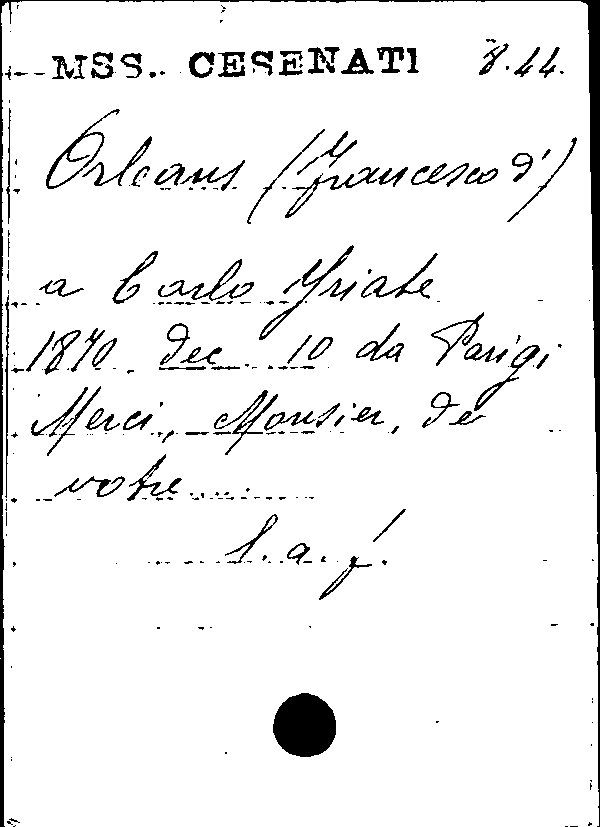 MSS. CESENATI 8.44.
Orleans (Francesco d')
a Carlo Yriate
1870 dec 10 da Parigi
Merci, Monsier, de
votre....
l. a. f.